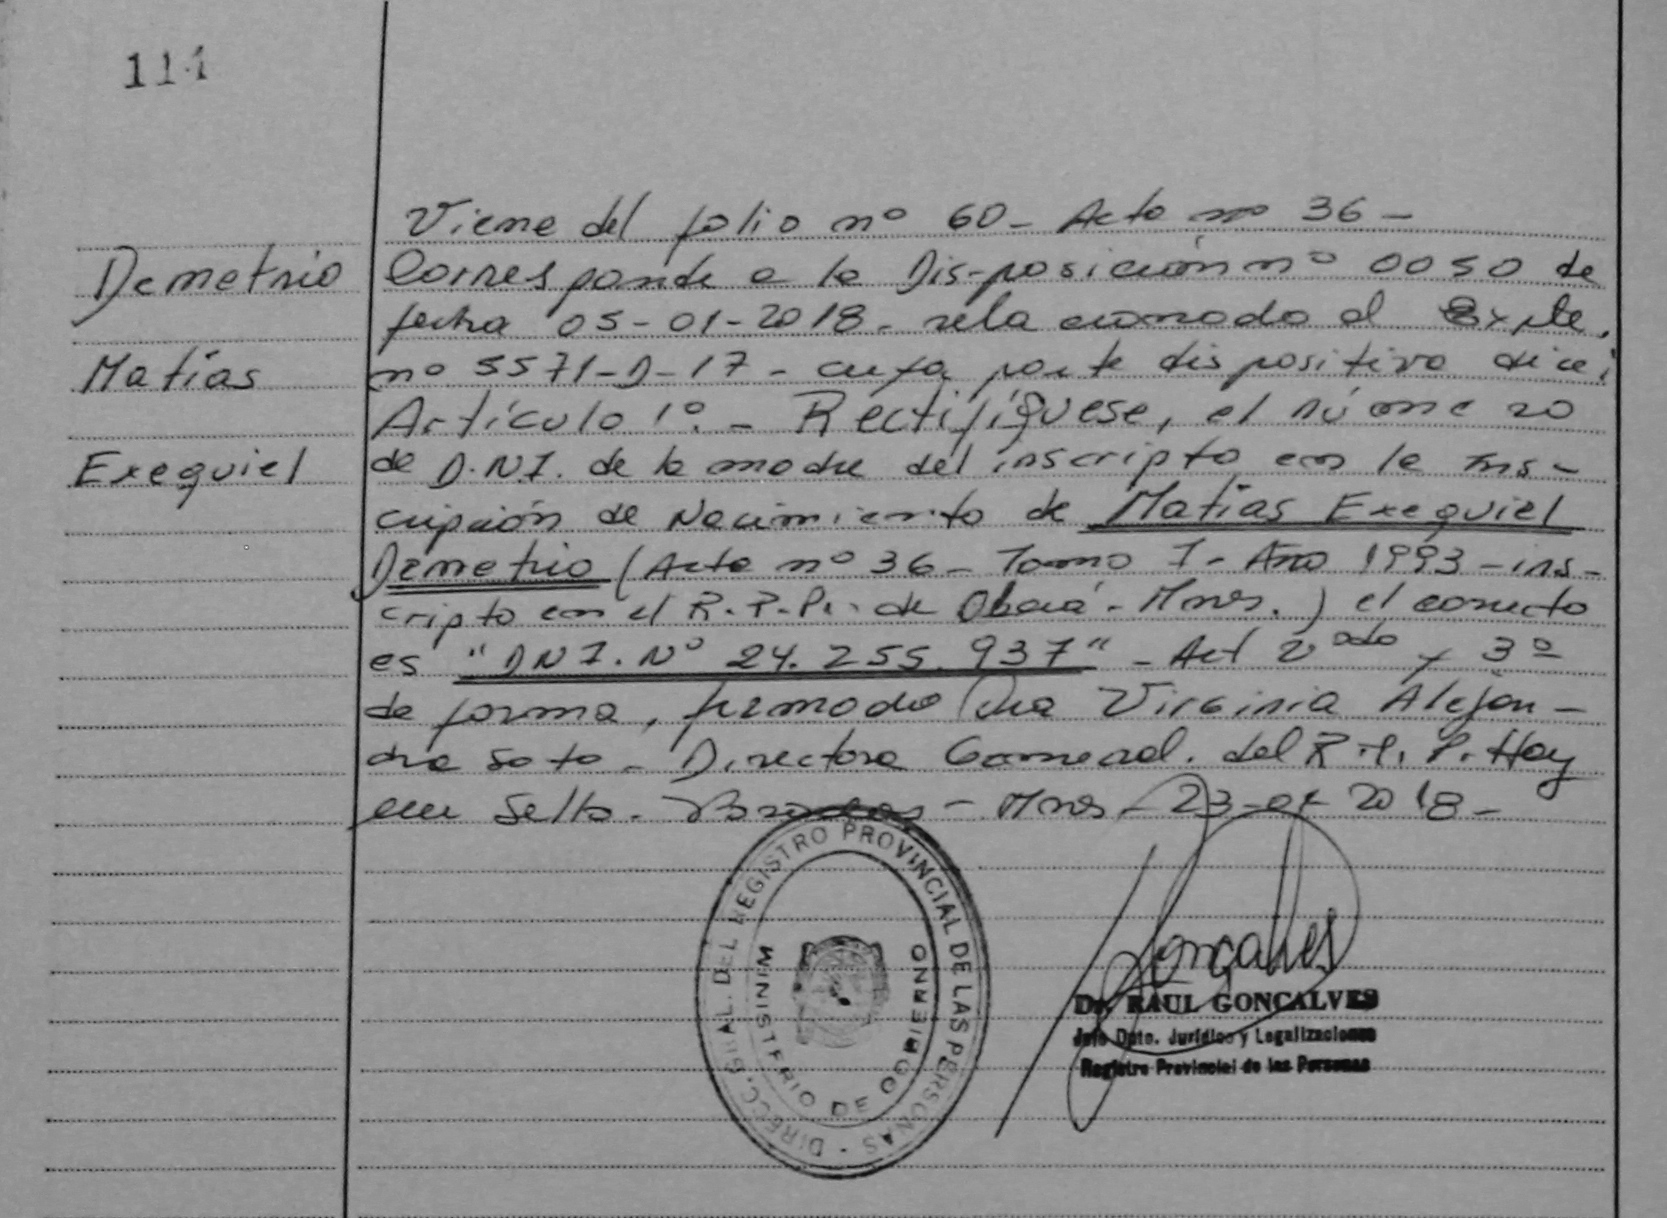 114
Demetrio
Matías
Exequiel
Viene del folio nº 60 - Acta nº 36 -
Corresponde a la Disposición nº 0050 de
fecha 05-01-2018 - relacionado al Expte.
nº 5571-D-17 - cuya parte dispositiva dice:
Artículo 1º. - Rectifíquese, el número
de D.N.I. de la madre del inscripto en la Ins-
cripción de Nacimiento de Matías Exequiel
Demetrio (Acta nº 36 - Tomo I - Año 1993 - ins-
cripto en el R.P.P. de Oberá - Mnes.) el correcto
es "DNI. Nº 24.255.937" - Art 2ndo y 3º
de forma, firmado Dra Virginia Alejan-
dra Soto - Directora General. del R.P.P. Hay
un Sello. - Mnes - 23- 2018 -
DIRECC. GRAL. DEL REGISTRO PROVINCIAL DE LAS PERSONAS -
MINISTERIO DE GOBIERNO
Gonçalves
Dr. RAUL GONCALVES
Jefe Dpto. Jurídico y Legalizaciones
Registro Provincial de las Personas